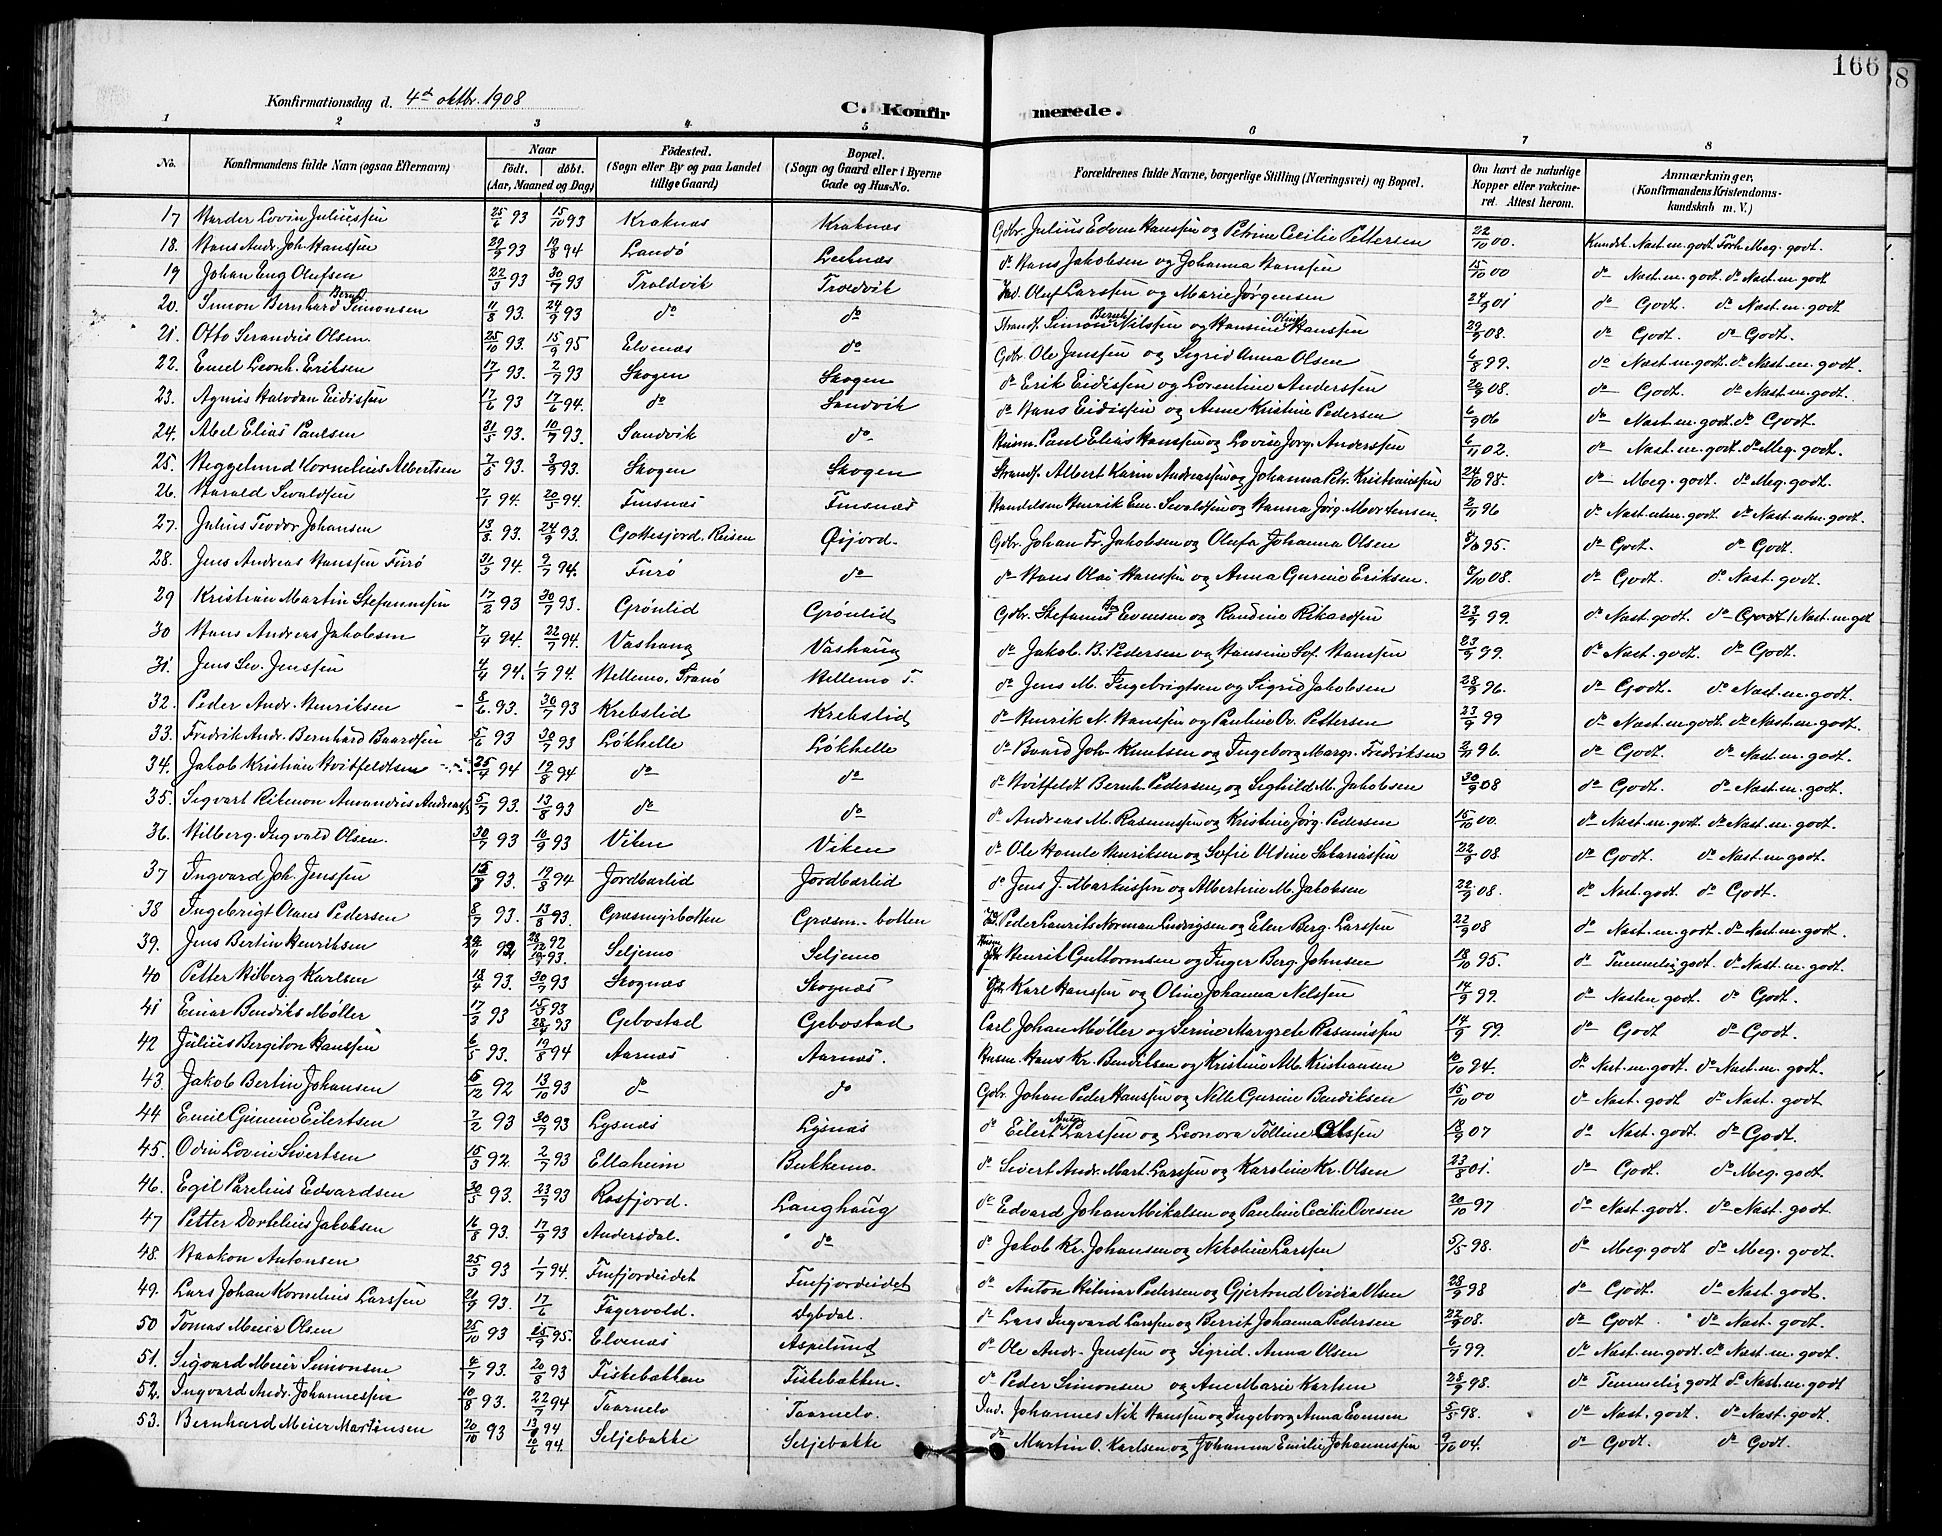 166
8
Konfirmationsdag d. 4de oktbr. 1908
C. Konfirmerede.
1 2 3 4 5 6 7 8
No. Konfirmandens fulde Navn (ogsaa Efternavn) Naar født. døbt. (Aar, Maaned og Dag) Fødested. (Sogn eller By og paa Landet tillige Gaard) Bopæl. (Sogn og Gaard eller i Byerne Gade og Hus-No. Forældrenes fulde Navne, borgerlige Stilling (Næringsvei) og Bopæl. Om havt de naturlige Kopper eller vakcineret. Attest herom. Anmærkninger. (Konfirmandens Kristendomskundskab m. V.)
17 Harder Lovin Juliussen 25/6 93 15/10 93 Kraknæs Kraknæs Gdbr. Julius Edvin Hanssen og Petrine Cecilie Pettersen 22/10 00. Kundsk. Nast. m. godt Forh. Meg. godt.
18. Hans Andr. Joh. Hanssen 29/9 93 19/8 94 Landø Leiknæs do Hans Jakobsen og Johanna Hanssen 15/10 00 do Nast. m. godt do Nast. m. godt
19 Johan Eng. Olufsen 22/3 93 30/7 93 Troldvik Troldvik Ind. Oluf Larssen og Marie Jørgensen 24/9 01 do Godt. do Nast. m. godt.
20. Simon Bernhard Bernt Simonsen 11/8 93. 24/9 93 do do Strands. Simon Bernh. Nilssen og Hansine Oline Hanssen 29/9 08. do Godt. do Godt.
21. Otto Serandius Olsen. 25/10 93. 15/9 95 Elvenæs do Gdbr. Ole Jenssen og Sigrid Anna Olsen 6/8 99. do Nast. m. godt. do Nast. m. godt.
22. Emel Leonh. Eriksen 17/1 93. 2/7 93 Skogen Skogen do Erik Eidissen og Lorentine Anderssen 20/9 08. do Godt. do Nast. m. godt.
23. Agnus Halvdan Eidissen 17/6 93 17/6 94. do Sandvik do Hans Eidissen og Anne Kristine Pedersen 6/9 06 do Nast. m. godt. do Godt.
24. Abel Elias Paulsen 21/5 93. 10/7 93. Sandvik do Husm. Paul Elias Hanssen og Lovise Jørg. Anderssen 6/11 02. do Nast. m. godt. do Meg. godt.
25. Heggelund Kornelius Albertsen 7/5 93. 3/9 93. Skogen Skogen Strands. Albert Karin Andreassen og Johanna Petr. Kristianssen 24/10 98. do Meg. godt do Meg. godt.
26. Harald Sevaldsen 7/1 94. 20/5 94. Finsnæs Finsnæs Handelsm. Henrik Em. Sevaldsen og Hanna Jørg. Mortensen. 2/11 96 do Nast. utm. godt do Nast. utm. godt.
27. Julius Teodor Johansen 13/8 93. 24/9 93. Gottesjord. Reisen Øijord. Gdbr. Johan Fr. Jakobsen og Olufa Johanna Olsen 8/6 95. do Godt. do Godt.
28. Jens Andreas Hanssen Furø 31/3 94. 9/7 94. Furø do do Hans Olai Hanssen og Anna Gurine Eriksen. 3/10 08. do Godt. do Nast. godt.
29 Kristian Martin Stefanussen 17/2 93 30/7 93. Grønlid Grønlid Gdbr. Stefanus Evensen og Randine Rikardsen 23/9 99. do Nast. godt. do Godt / Nast. m. gdt
30 Hans Andreas Jakobsen 7/4 94. 22/7 94. Vashaug Vashaug do Jakob. B. Pedersen og Hansine Sof. Hanssen 23/9 99. do Nast. godt. do Godt.
31. Jens Sev. Jenssen 4/4 94. 1/7 94. Hellemo, Tranø Hellemo T. do Jens M. Ingebrigtsen og Sigrid Jakobsen 28/9 96. do Godt. do Nast. m. godt.
32. Peder Andr. Henriksen 8/6 93. 30/7 93 Krebslid Krebslid do Henrik N. Hanssen og Pauline Ov. Pettersen 23/9 99 do Nast. m. godt do Nast. m. godt.
33. Fredrik Andr. Bernhard Baardsen 5/6 93 30/7 93 Løkhelle Løkhelle do Baard Joh. Knutsen og Ingeborg Marg. Fredriksen 2/11 96. do Godt. do Nast. m. godt.
34. Jakob Kristian Hvitfeldtsen 25/4 94 19/8 94 do do do Hvitfeldt Bernh. Pedersen og Sighild M. Jakobsen 30/9 08 do Godt. do Nast. m. godt.
35. Sigvart Rikmon Amandus Andreass. 5/7 93. 13/8 93 do do do Andreas M. Rasmussen og Kristine Jørg. Pedersen 15/10 00. do Nast. m. godt. do Nast. m. godt.
36. Hilberg Ingvald Olsen. 30/7 93 10/9 93 Viken Viken do Ole Hamle Henriksen og Sofie Oldine Sakariassen 22/9 08. do Godt. do Nast. m. godt.
37 Ingvard Joh. Jenssen 15/8 93. 19/8 94 Jordbærlid Jordbærlid do Jens J. Markussen og Albertine M. Jakobsen 22/9 08. do Nast. godt do Godt.
38 Ingebrigt Olaus Pedersen 8/7 93. 13/8 93. Græsmyrbotten Græsm.-botten Ind. Peder Laurits Norman Ludvigsen og Elen Berg. Larssen 22/9 08 do Nast. m. godt. do Nast. m. godt.
39. Jens Bertin Henriksen 29/11 92 28/12 92 10/9 93. Seljemo Seljemo Husm. Henrik Guttormsen og Inger Berg. Johnsen 18/10 95. do Temmelig godt. do Nast. m. godt.
40 Petter Hilberg Karlsen 18/4 93. 30/7 93 Skognæs Skognæs Gdbr. Karl Hanssen og Oline Johanna Nelssen 14/9 99. do Nasten godt. do Godt.
41 Einar Bendiks Møller 17/2 93 15/3 93 28/4 93 Gebostad Gebostad Carl Johan Møller og Serine Margrete Rasmussen 14/9 99. do Godt do Godt.
42 Julius Bergiton Hanssen 6/5 93. 19/8 94 Aarnæs Aarnæs. Husm. Hans Kr. Bendiksen og Kristine Alb. Kristiansen 10/10 94. do Nast. m. godt. do Nast. m. godt.
43. Jakob Bertin Johansen 5/12 92 13/10 93 do do Gdbr. Johan Peder Hanssen og Nelle Gurine Bendiksen 15/10 00 do Nast. godt do Nast. godt.
44 Emil Gunnin Eilertsen 7/2 93 30/7 93 Lysnæs Lysnæs do Eilert Anton Larssen og Leonora Tolline Olssen 18/9 07 do Nast. godt. do Godt.
45. Odin Lovin Sivertsen 15/3 92. 2/7 93 Ellaheim Bukkemo. do Sivert Andr. Mart. Larssen og Karoline Kr. Olsen 23/8 01. do Godt. do Meg. godt.
46. Egil Parelius Edvardsen 30/5 93. 23/7 93 Rosfjord. Langhaug do Edvard Johan Mikalsen og Pauline Cecilie Ovesen 20/10 97 do Nast. godt. do Nast. godt.
47 Petter Dortelius Jakobsen 16/8 93. 17/9 93 Andersdal. do do Jakob Kr. Johansen og Nikoline Larssen 5/5 98. do Meg. godt do Meg. godt.
48. Haakon Antonsen 25/3 93 1/7 94. Finfjordeidet Finfjordeidet do Anton Hilmar Pedersen og Gjertrud Ovidia Olsen 28/9 98 do Godt. do Nast. godt.
49. Lars Johan Kornelius Larssen 21/9 93. 17/6 Fagervold. Dybdal. do Lars Ingvard Larssen og Berrit Johanna Pedersen 22/9 08. do Godt. do Nast. godt.
50 Tomas Meier Olsen 25/10 93 25/9 95. Elvenæs Aspelund do Ole Andr. Jenssen og Sigrid. Anna Olsen 6/9 99. do Nast. m. godt do Nast. m. godt.
51. Sigvard Meier Simonsen 4/7 93. 20/8 93 Fiskebakken Fiskebakken. do Peder Simonsen og Ane Marie Karlsen 28/9 98. do Temmelig godt do Nast. m. godt
52. Ingvard Andr. Johannessen 10/8 93. 22/7 94 Taarnelv Taarnelv. Ind. Johannes Nik Hanssen og Ingeborg Anna Evensen 5/5 98. do Nast. godt. do Nast. godt.
53. Bernhard Meier Martinsen 20/10 93 13/1 94 10/6 94. Seljebakke Seljebakke do Martin O. Karlsen og Johanna Emilie Johannessen 9/10 04. do Godt do Godt.